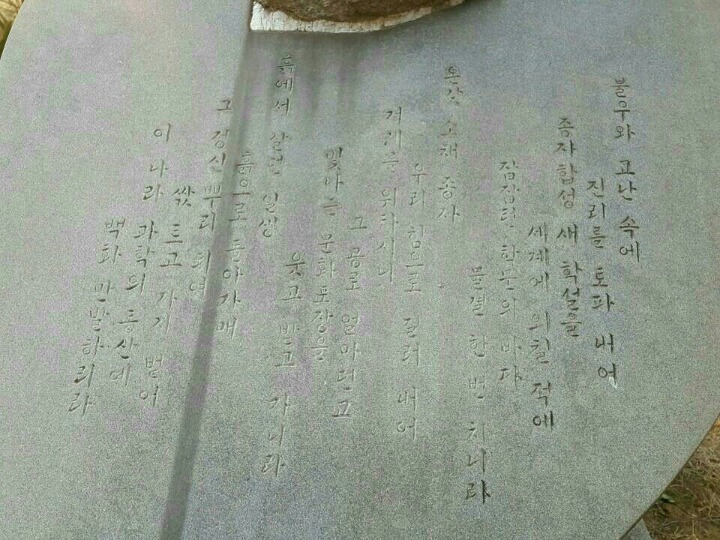 불우와 고난 속에
진리를 토파 내어
종자합성 새 학설을
세계에 외칠 적에
잠잠턴 학문의 바다
물결 한 번 치니라
온갖 소채 종자
우리 힘으로 길러 내어
겨레를 위하시니
그 공로 얼마런고
빛나는 문화포장을
웃고 받고 가니라
흙에서 살던 인생
흙으로 돌아가매
그 정신 뿌리 되여
싻 트고 가지 벋어
이 나라 과학의 동산에
백화 만발하리라